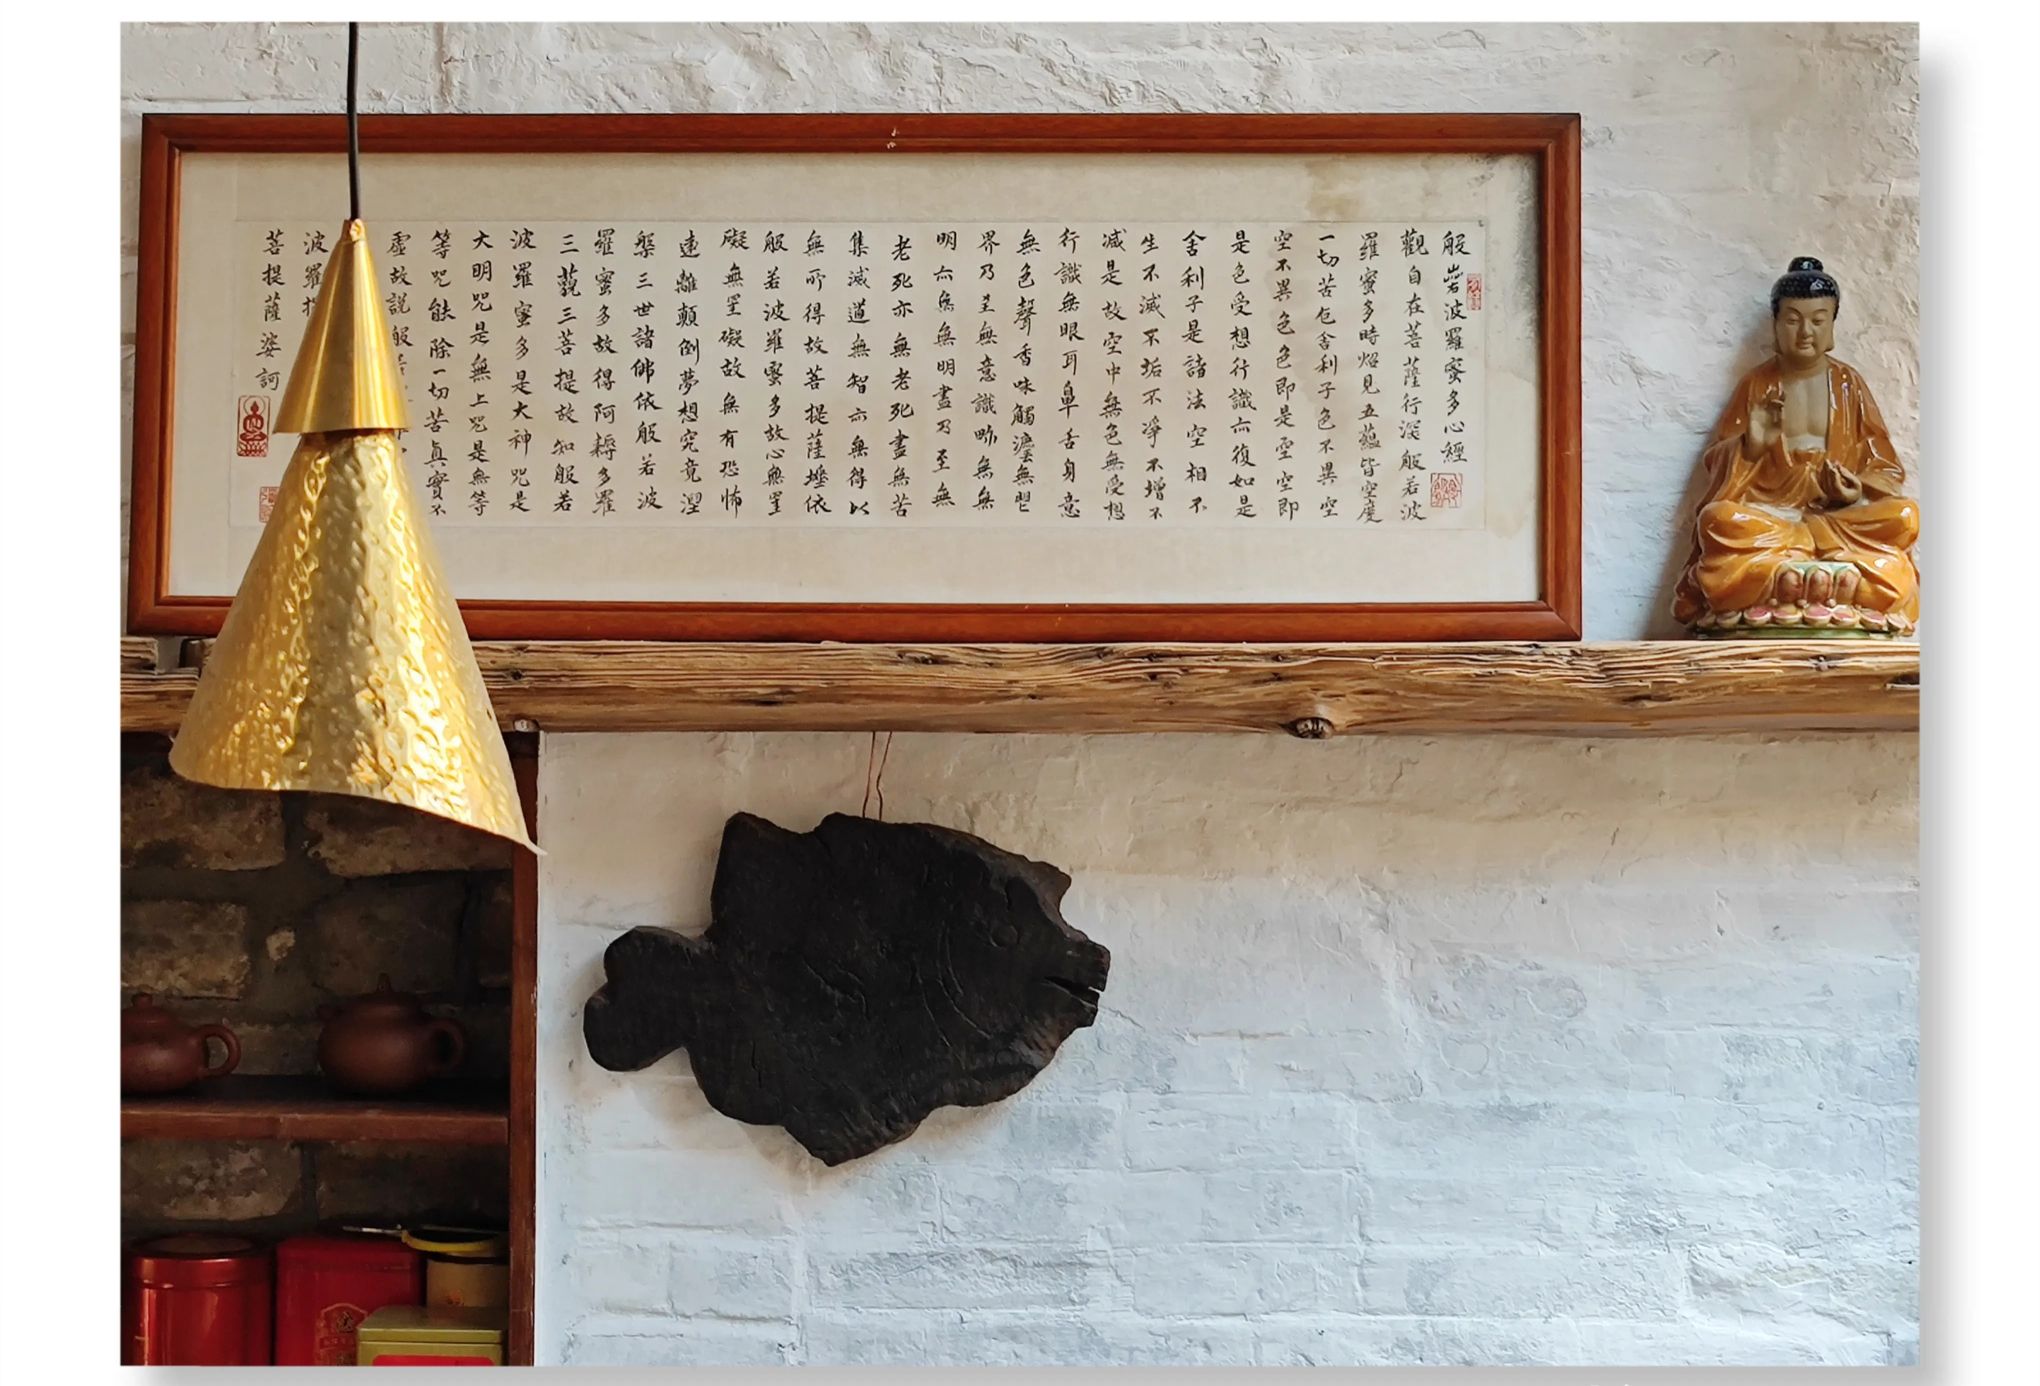 般若波羅蜜多心經
觀自在菩薩行深般若波
羅蜜多時炤見五蘊皆空度
一切苦厄舍利子色不異空
空不異色色即是空空即
是色受想行識亦復如是
舍利子是諸法空相不
生不滅不垢不淨不增不
減是故空中無色無受想
行識無眼耳鼻舌身意
無色聲香味觸法無眼
界乃至無意識界無無
明亦無無明盡乃至無
老死亦無老死盡無苦
集滅道無智亦無得以
無所得故菩提薩埵依
般若波羅蜜多故心無罣
礙無罣礙故無有恐怖
遠離顛倒夢想究竟涅
槃三世諸佛依般若波
羅蜜多故得阿耨多羅
三藐三菩提故知般若
波羅蜜多是大神咒是
大明咒是無上咒是無等
等咒能除一切苦真實不
虛故說般若
波羅揭
菩提薩婆訶